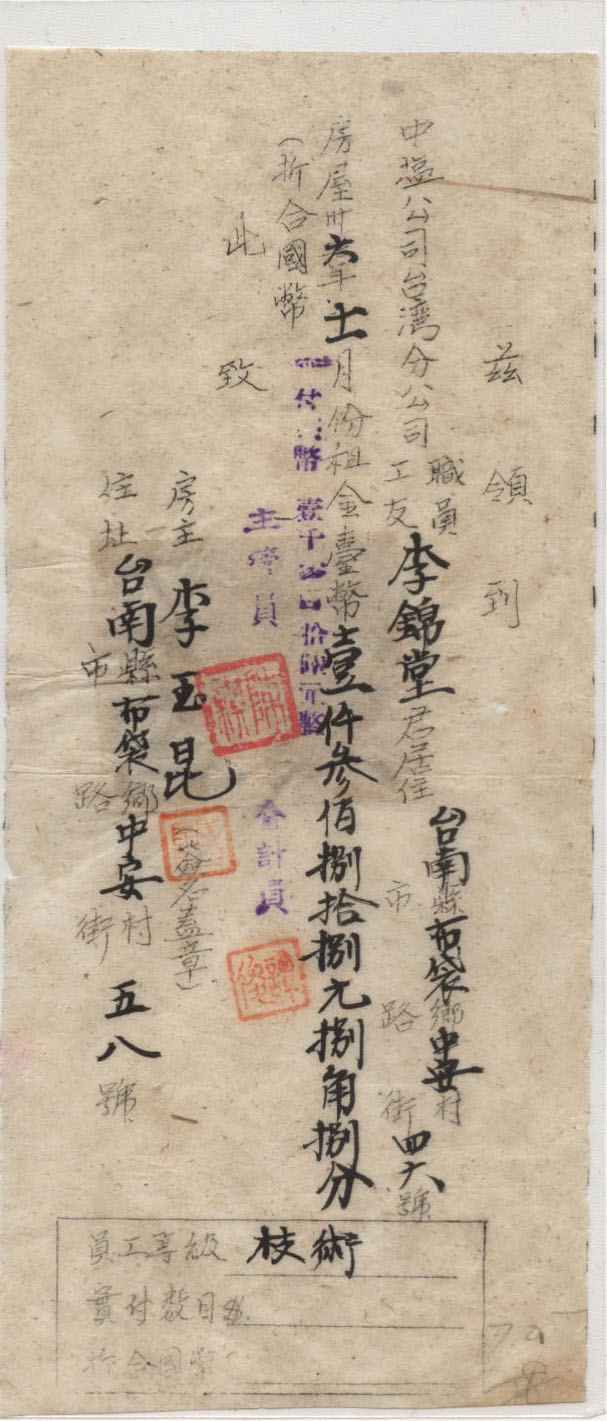 茲領到
中塩公司台湾分公司職員工友李錦堂君居住台南縣市布袋鄉路中安村街四六號
房屋卅六年十一月份租金臺幣壹仟參佰捌拾捌元捌角捌分
(折合國幣
此
致
主管員
會計員
房主 李玉昆 (簽名蓋章)
住址 台南縣市布袋鄉路中安村街五八號
員工等級 技術
實付数目
折合國幣